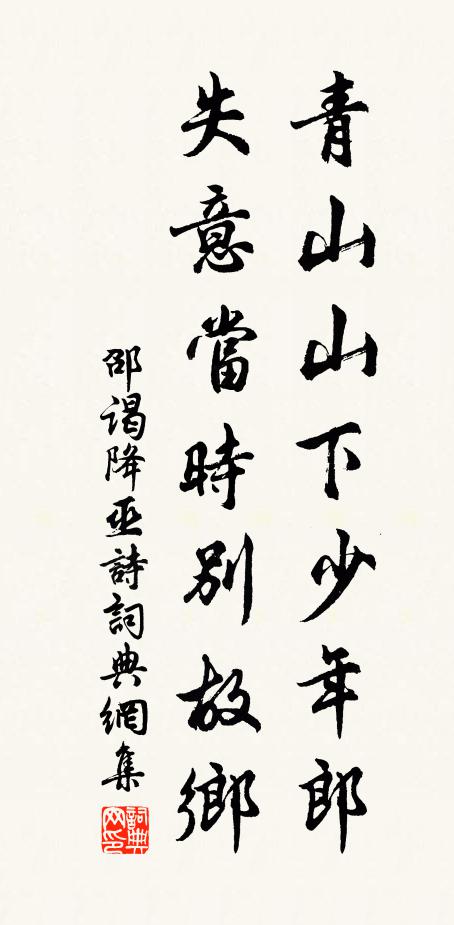 青山山下少年郎
失意當時別故鄉
邵谒降巫詩詞典網集
詞典
网印